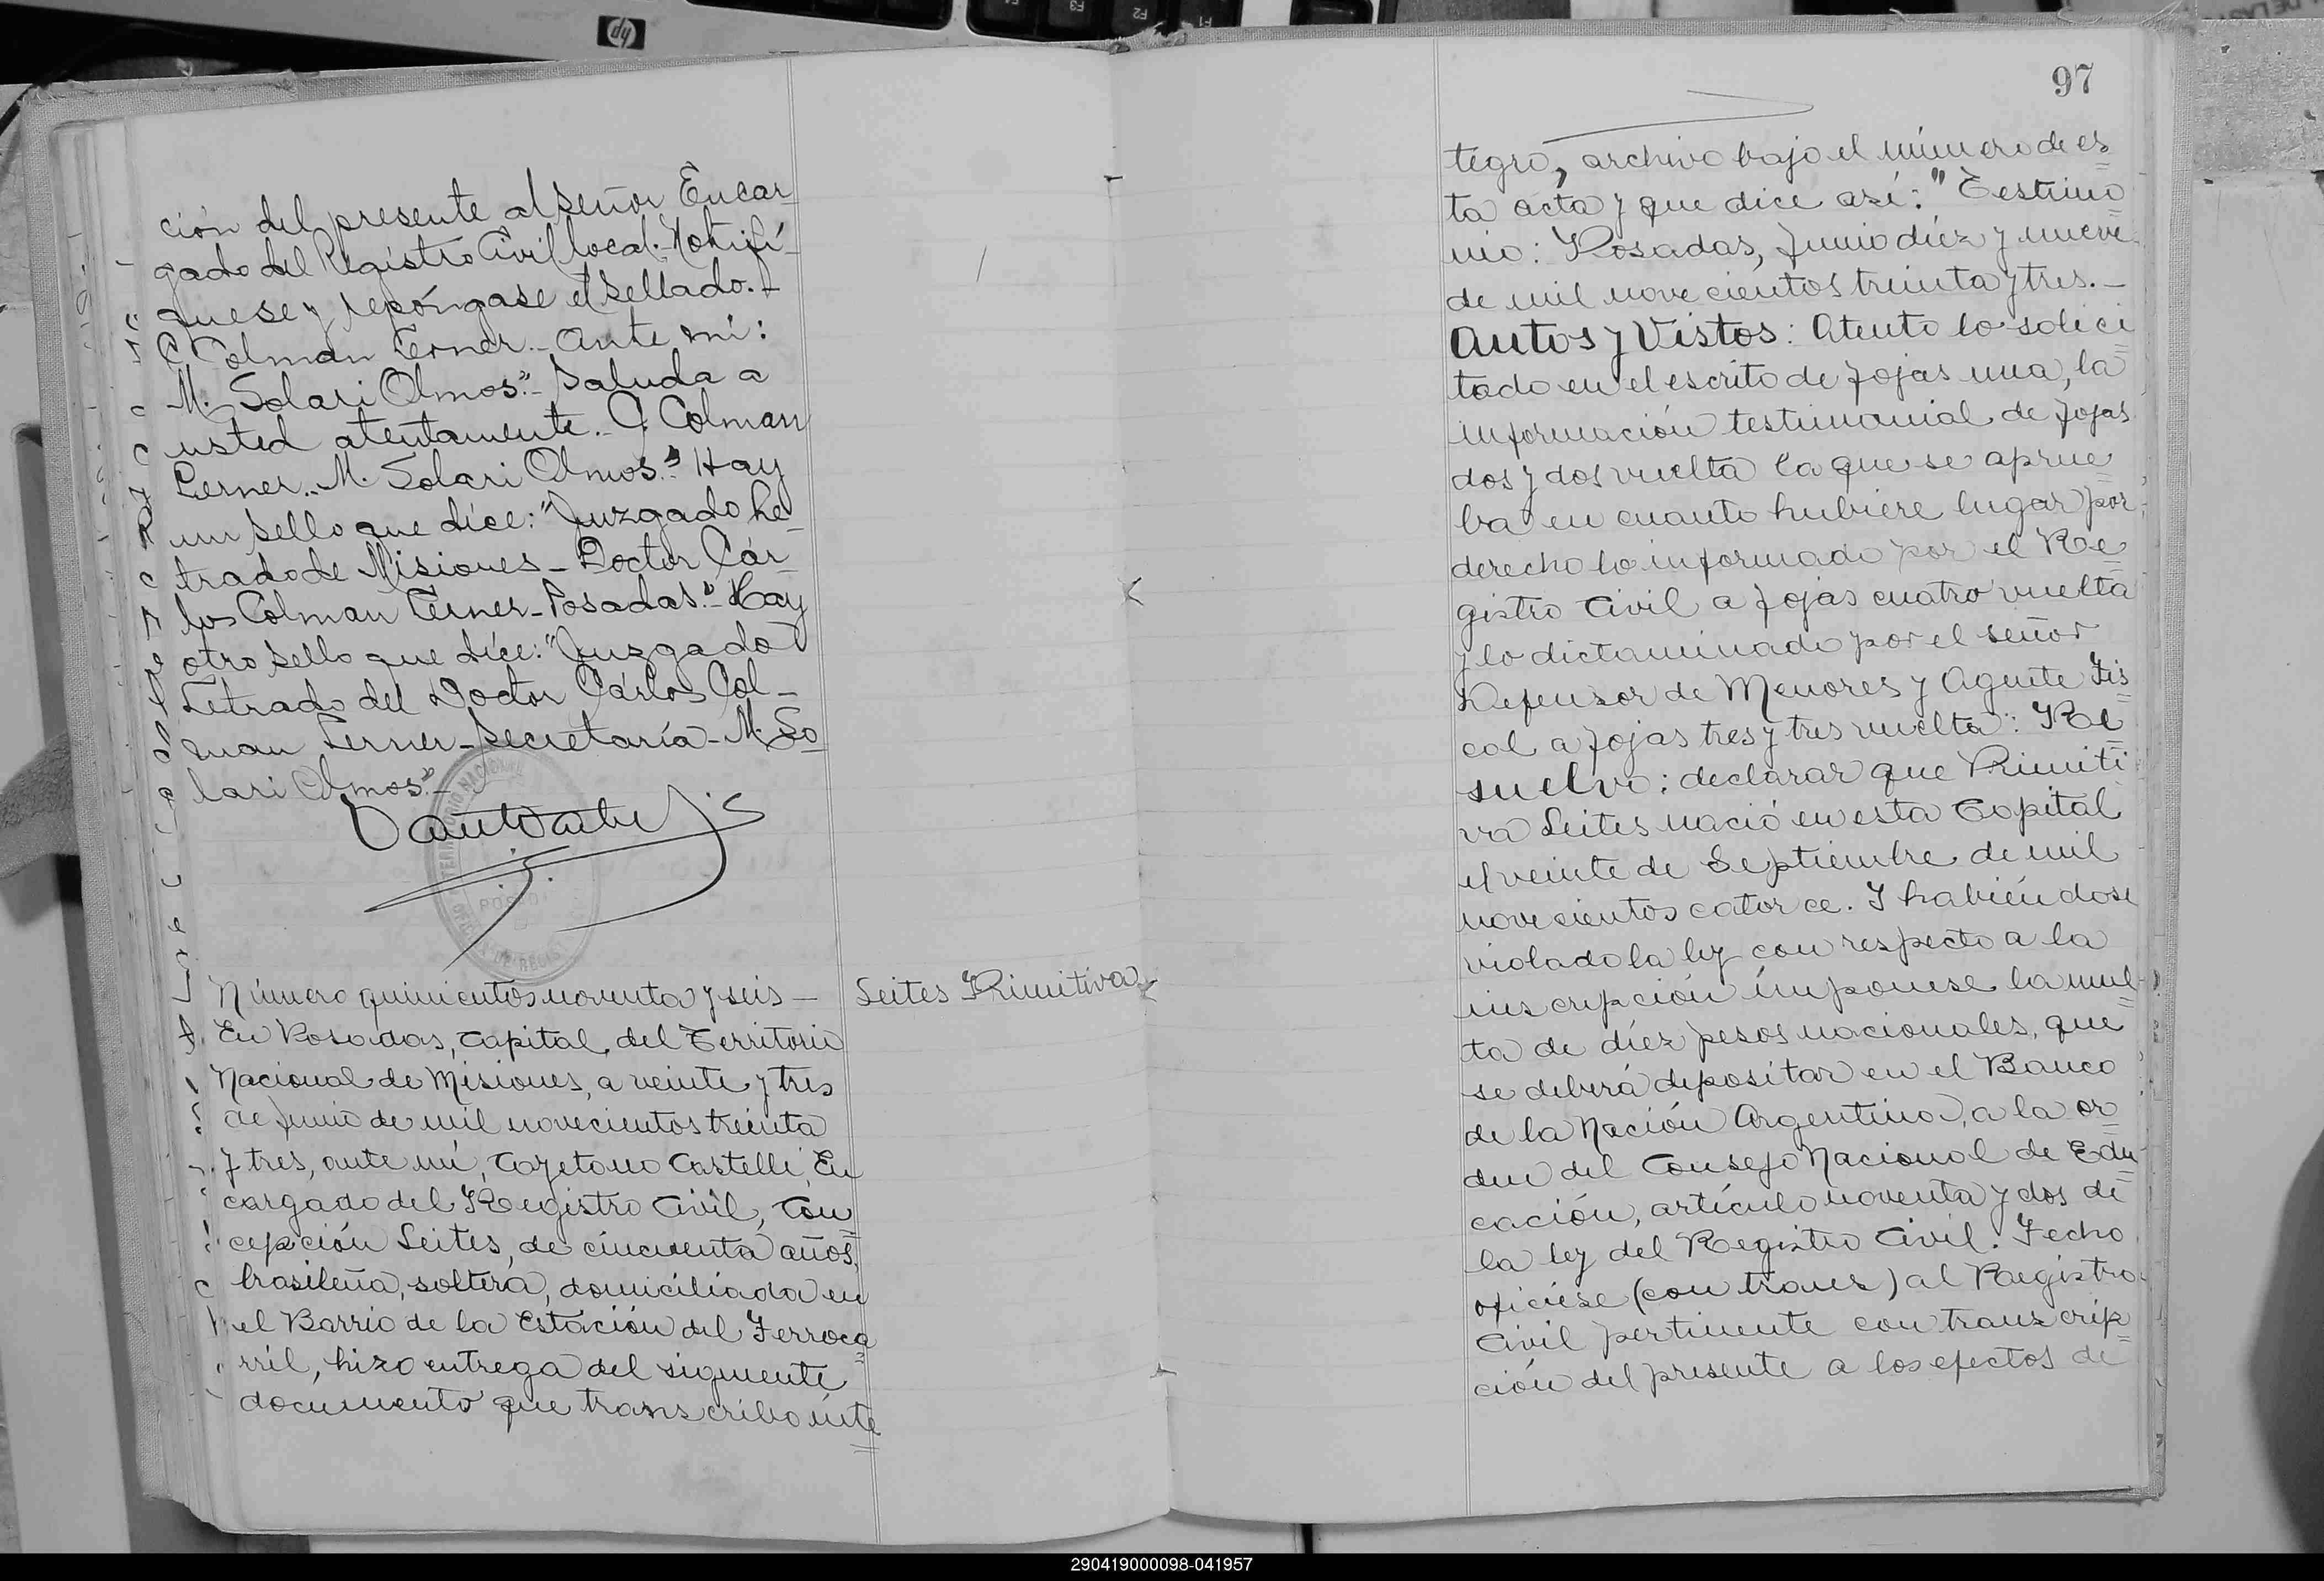 ción del presente al señor Encar-
gado del Registro Civil local. Notifí-
quese y repóngase el sellado.-
C. Colman Lerner.- Ante mí:
M. Solari Olmos".- Saluda a
usted atentamente.- C. Colman
Lerner.- M. Solari Olmos." Hay
un sello que dice: "Juzgado Le-
trado de Misiones - Doctor Cár-
los Colman Lerner - Posadas".- Hay
otro sello que dice: "Juzgado
Letrado del Doctor Cárlos Col-
man Lerner - Secretaría - M. So
lari Olmos".-
Número quinientos noventa y seis —
Seites Primitiva
En Posadas, Capital del Territorio
Nacional de Misiones, a veinte y tres
de Junio de mil novecientos treinta
y tres, ante mí, Cayetano Castelli, En
cargado del Registro Civil, Con
cepción Seites, de cincuenta años,
brasileña, soltera, domiciliada en
el Barrio de la Estación del Ferroca
rril, hizo entrega del siguiente
documento que transcribo ínte
97
tegro, archivo bajo el número de es
ta acta y que dice así: "Testimo
nio: Posadas, Junio diez y nueve
de mil novecientos treinta y tres.-
Autos y Vistos: Atento lo solici
tado en el escrito de fojas una, la
información testimonial de fojas
dos y dos vuelta la que se aprue
ba en cuanto hubiere lugar por
derecho lo informado por el Re
gistro Civil a fojas cuatro vuelta
y lo dictaminado por el señor
Defensor de Menores y Agente Fis
cal a fojas tres y tres vuelta: Re
suelvo: declarar que Primiti
va Seites nació en esta Capital
el veinte de Septiembre de mil
novecientos catorce. Y habiéndose
violado la ley con respecto a la
inscripción impónese la mul
ta de diez pesos nacionales, que
se deberá depositar en el Banco
de la Nación Argentina, a la or
den del Consejo Nacional de Edu
cación, artículo noventa y dos de
la ley del Registro Civil. Fecho
ofíciese (con trans) al Registro
Civil pertinente con transcrip
ción del presente a los efectos de
290419000098-041957